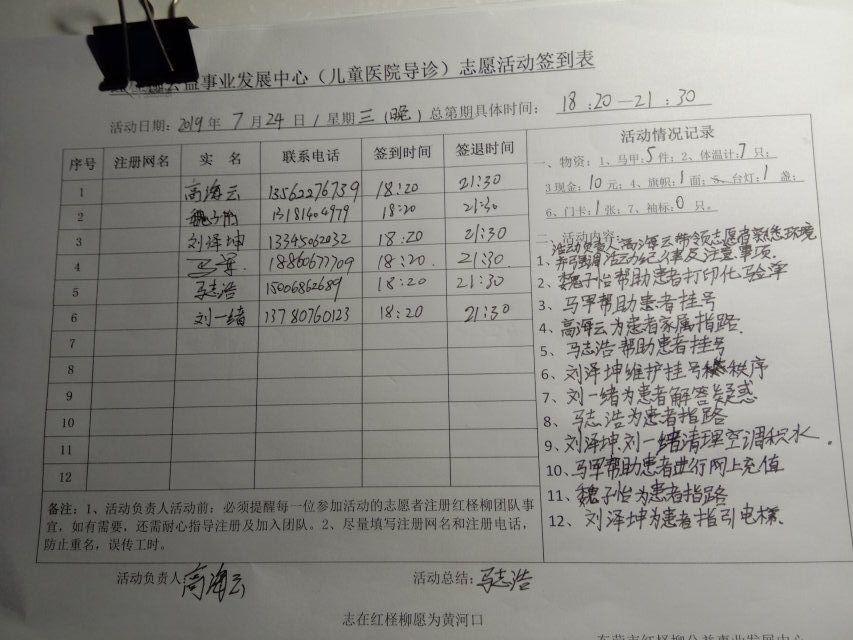 益事业发展中心（儿童医院导诊）志愿活动签到表
活动日期：2019年 7 月 24 日 / 星期 三（晚）总第期具体时间：18:20—21:30
序号 注册网名 实 名 联系电话 签到时间 签退时间
1 高海云 13562276739 18:20 21:30
2 魏子怡 13181404979 18:20 21:30
3 刘泽坤 13345062032 18:20 21:30
4 马军 18860677709 18:20 21:30
5 马志浩 15006862689 18:20 21:30
6 刘一绪 13780760123 18:20 21:30
7
8
9
10
11
12
备注：1、活动负责人活动前：必须提醒每一位参加活动的志愿者注册红柽柳团队事
宜，如有需要，还需耐心指导注册及加入团队。2、尽量填写注册网名和注册电话，
防止重名，误传工时。
活动情况记录
一、物资：1、马甲：5件；2、体温计：7只；
3现金：10元；4、旗帜：1面；5、台灯：1 盏；
6、门卡：1张；7、袖标：0 只。
二、活动内容：
1、活动负责人高海云带领志愿者熟悉环境
并强调活动纪律及注意事项.
2、魏子怡帮助患者打印化验单
3、马军帮助患者挂号
4、高海云为患者家属指路.
5、马志浩帮助患者挂号
6、刘泽坤维护挂号秩序
7、刘一绪为患者解答疑惑
8、马志浩为患者指路
9、刘泽坤、刘一绪清理空调积水.
10、马军帮助患者进行网上充值
11、魏子怡为患者指路
12、刘泽坤为患者指引电梯.
活动负责人：高海云 活动总结：马志浩
志在红柽柳愿为黄河口
东营市红柽柳公益事业发展中心